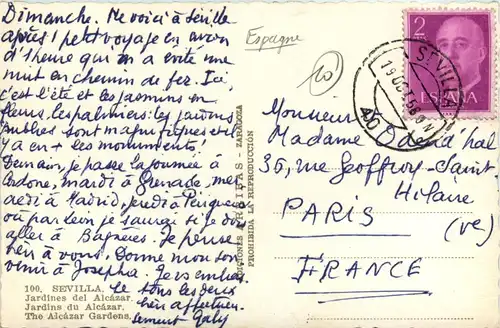 Dimanche. Me voici à Séville
après 1 petit voyage en avion
d'1 heure qui m'a évité une
nuit en chemin de fer. Ici,
c'est l'été et les jasmins en
fleurs, les palmiers: les jardins
publics sont magnifiques et il
y a en + les monuments!
Demain, je passe la journée à
mardi à Grenade, mer-
credi à Madrid, jeudi à
où par l'ein je saurai si je dois
aller à Bagnères. Je pense
bien à vous. Donne mon sou-
venir à Josepha. Je vs embras-
se tous les deux
bien affectueu-
sement Galy
100. SEVILLA.
Jardines del Alcázar.
Jardins du Alcázar.
The Alcázar Gardens.
EDICIONES ARRIBAS - ZARAGOZA
PROHIBIDA LA REPRODUCCION
Espagne
10
2
ESPAÑA
SEVILLA
19 OCT 58
Monsieur
Madame
36, rue Geoffroy-Saint-
Hilaire
PARIS (Ve)
FRANCE